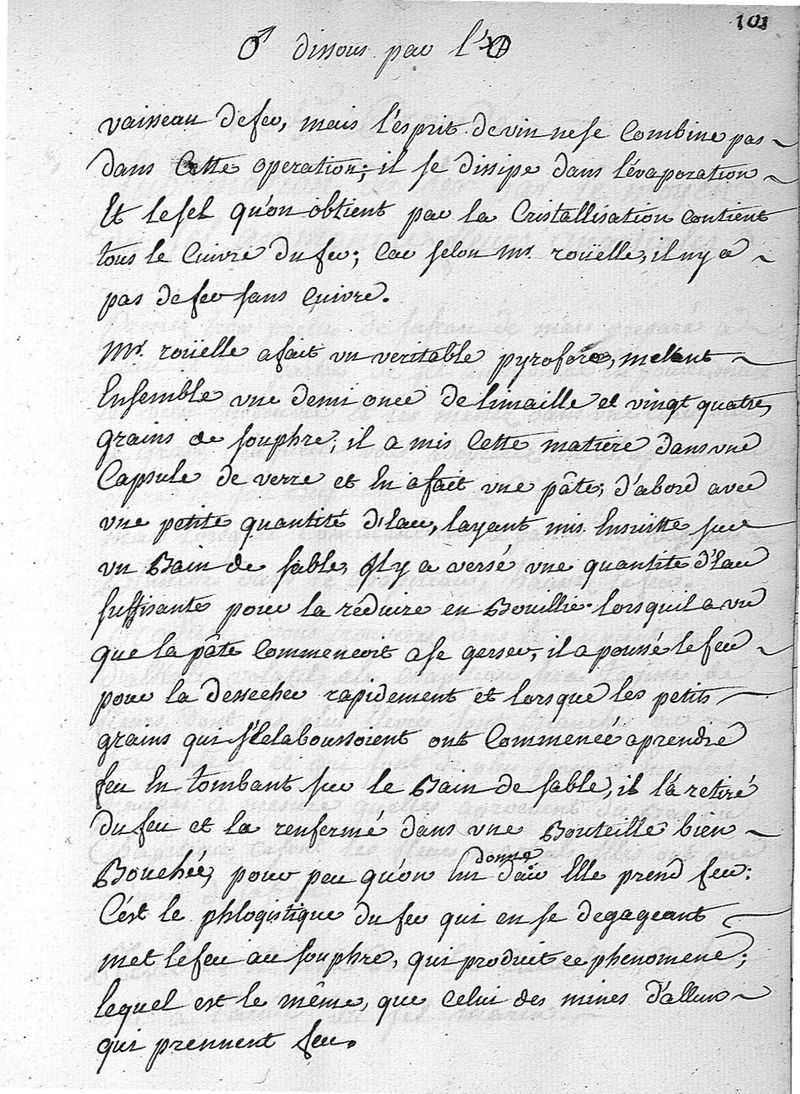 101
♂ dissous par l'
vaisseau de fer, mais l'esprit de vin ne se Combine pas
dans Cette operation; il se dissipe dans l'évaporation
Et le sel qu'on obtient par la Cristallisation contient
tous le Cuivre du fer; Car selon Mr. roüelle, il ny a
pas de fer sans Cuivre.
Mr. roüelle a fait un veritable pyrofore, melant
Ensemble une demi once de limaille et vingt quatre
grains de souphre; il a mis Cette matiere dans une
Capsule de verre et En a fait une pâte; d'abord avec
une petite quantité d'Eau, layant mis Ensuitte sur
un Bain de sable, Il y a versé une quantité d'Eau
suffisante pour la réduire en Bouillie. lorsquil a vu
que la pâte Commencoit a se gerser, il a poussé le feu
pour la dessecher rapidement et lorsque les petits
grains qui S'Elaboussoient ont Commencé aprendre
feu En tombant sur le Bain de sable, il l'a retiré
du feu et la renfermé dans une Bouteille bien
Bouchée, pour peu qu'on lui donne d'air Elle prend feu:
C'est le phlogistique du fer qui en se degageant
met le feu au souphre, qui produit ce phenomene;
lequel est le même, que Celui des mines d'allun
qui prennent feu.